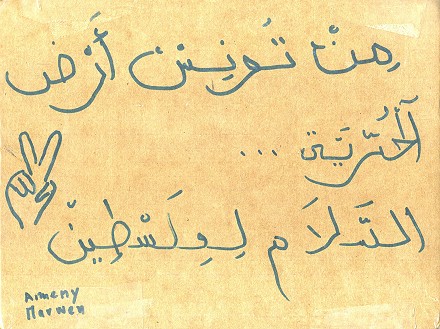 مِنْ تُونِسَ أَرْضِ
الْحُرِّيَّةِ ...
السَّلَامَ لِفِلَسْطِينْ
Aimeny
Marwen